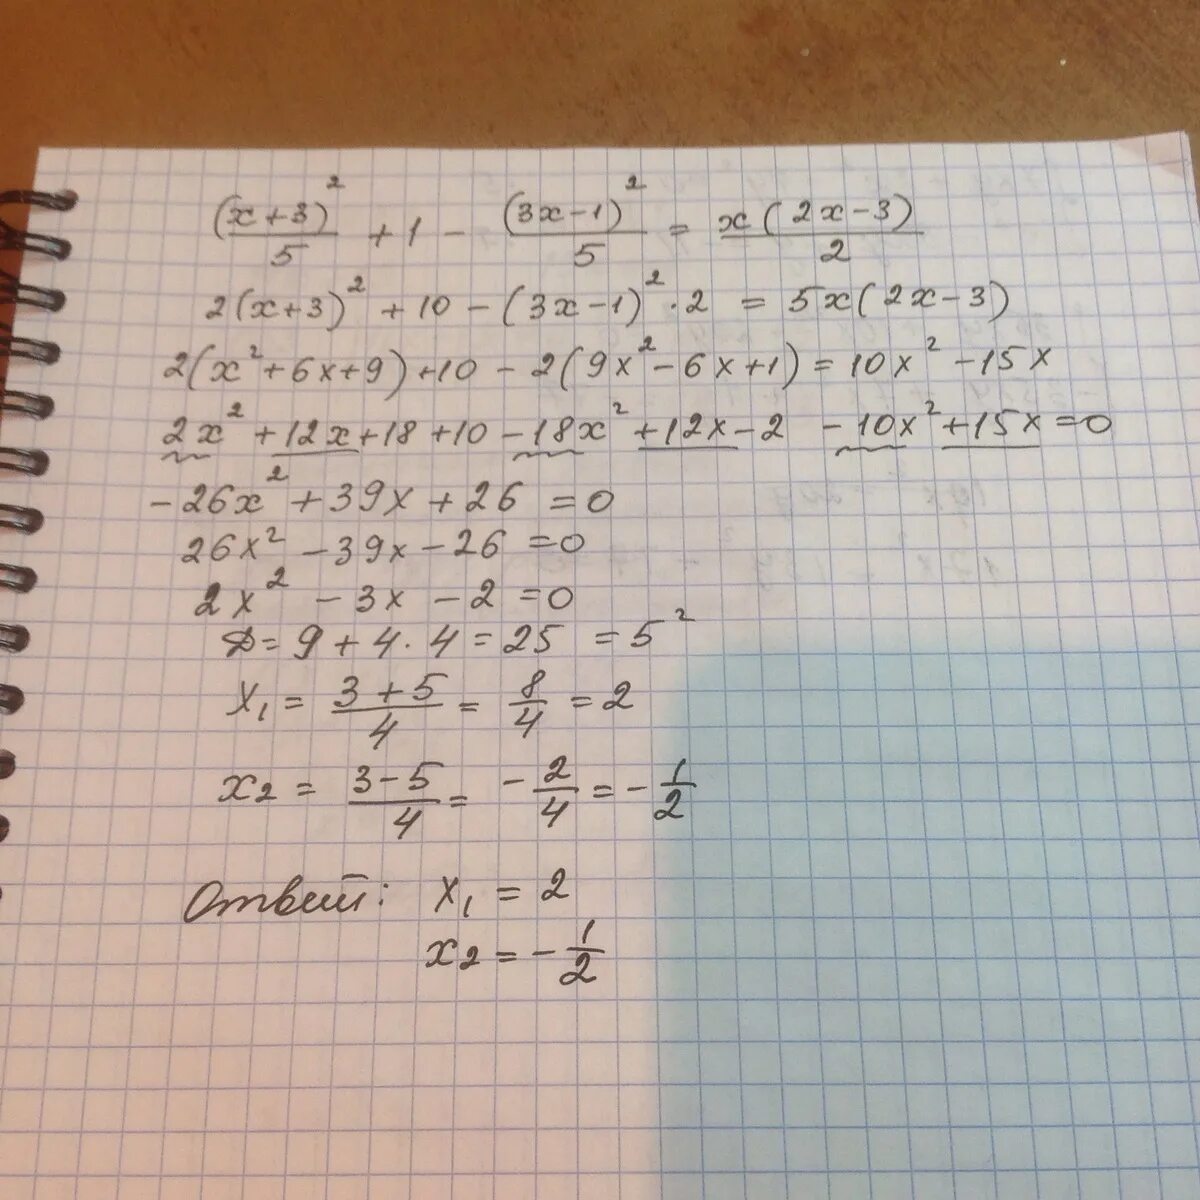 (x+3)²/5 + 1 − (3x−1)²/5 = x(2x−3)/2
2(x+3)² + 10 − (3x−1)² · 2 = 5x(2x−3)
2(x²+6x+9)+10 − 2(9x²−6x+1) = 10x² −15x
2x² +12x+18 +10 −18x² +12x −2 −10x² +15x =0
−26x² +39x + 26 =0
26x² −39x −26 =0
2x² −3x −2 =0
D= 9 + 4·4 = 25 = 5²
x₁ = (3+5)/4 = 8/4 = 2
x₂ = (3−5)/4 = −2/4 = −1/2
Ответ: x₁ = 2
x₂ = −1/2